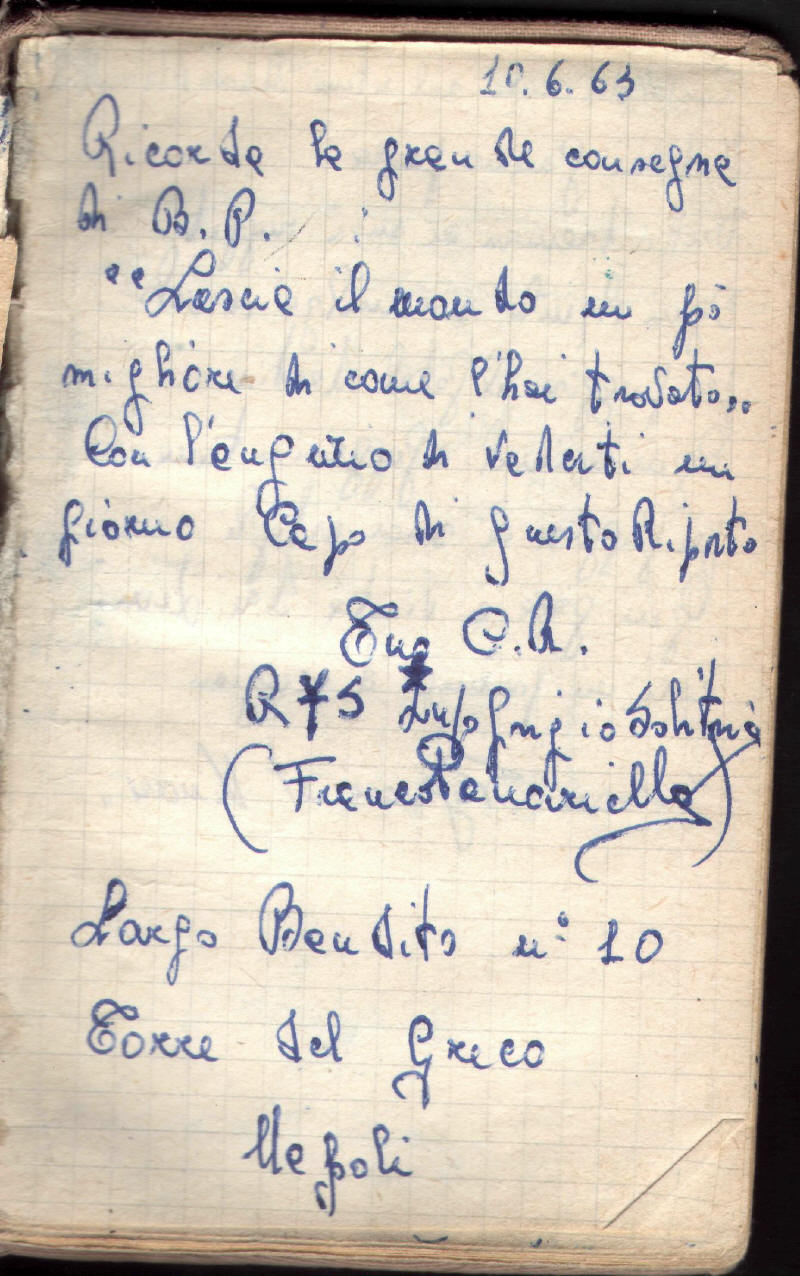 10.6.63
Ricorda la grande consegna
di B.P. :
"Lascia il mondo un pò
migliore di come l'hai trovato„
Con l'augurio di vederti un
giorno Capo di questo Riparto
Tuo C.R.
R Y S Lupo Grigio Solitario
(Franco Panariello)
Largo Bandito n° 10
Torre del Greco
Napoli